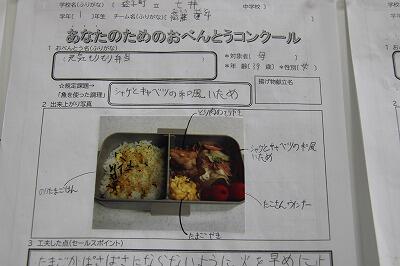 学校名(ふりがな) 益子町 立 七井 中学校 )
学年( 1 )年生 チーム名(ふりがな)
あなたのためのおべんとうコンクール
1 おべんとう名(ふりがな)
元気もりもり弁当
*対象者( 母 )
*年 齢( 39 歳) *性別( 女 )
☆規定課題→
「魚を使った調理」
シャケとキャベツの和風いため
揚げ物献立名
2 出来上がり写真
とり肉のてりやき
シャケとキャベツの和風
いため
のりたまごはん
たまごやき
たこさんウィンナー
3 工夫した点(セールスポイント)
たまごがぱさぱさにならないように、火を早めに